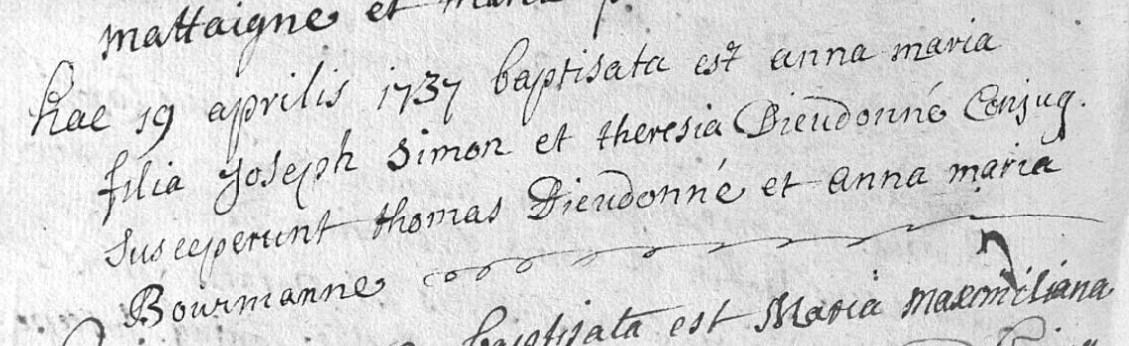 mattaigne et maria
hac 19 aprilis 1737 baptisata est anna maria
filia Joseph Simon et theresia Dieudonné Conjug.
susceperunt thomas Dieudonné et anna maria
Bourmanne
baptisata est Maria maxmiliana